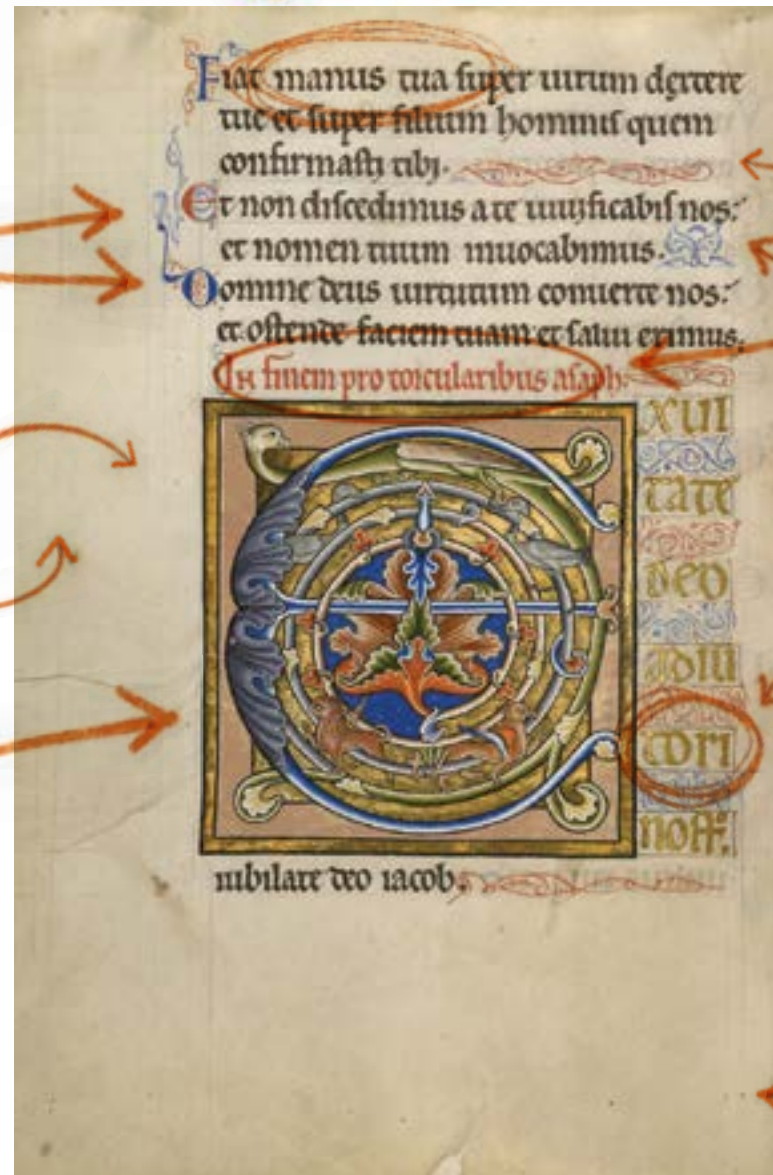 Fiat manus tua super uirum dextere
tue et super filium hominis quem
confirmasti tibi.
Et non discedimus a te uiuificabis nos:
et nomen tuum inuocabimus.
Domine deus uirtutum conuerte nos:
et ostende faciem tuam et salui erimus.
In finem pro torcularibus asaph.
EXUL
TATE
DEO
ADIU
TORI
nostro.
iubilate deo iacob.